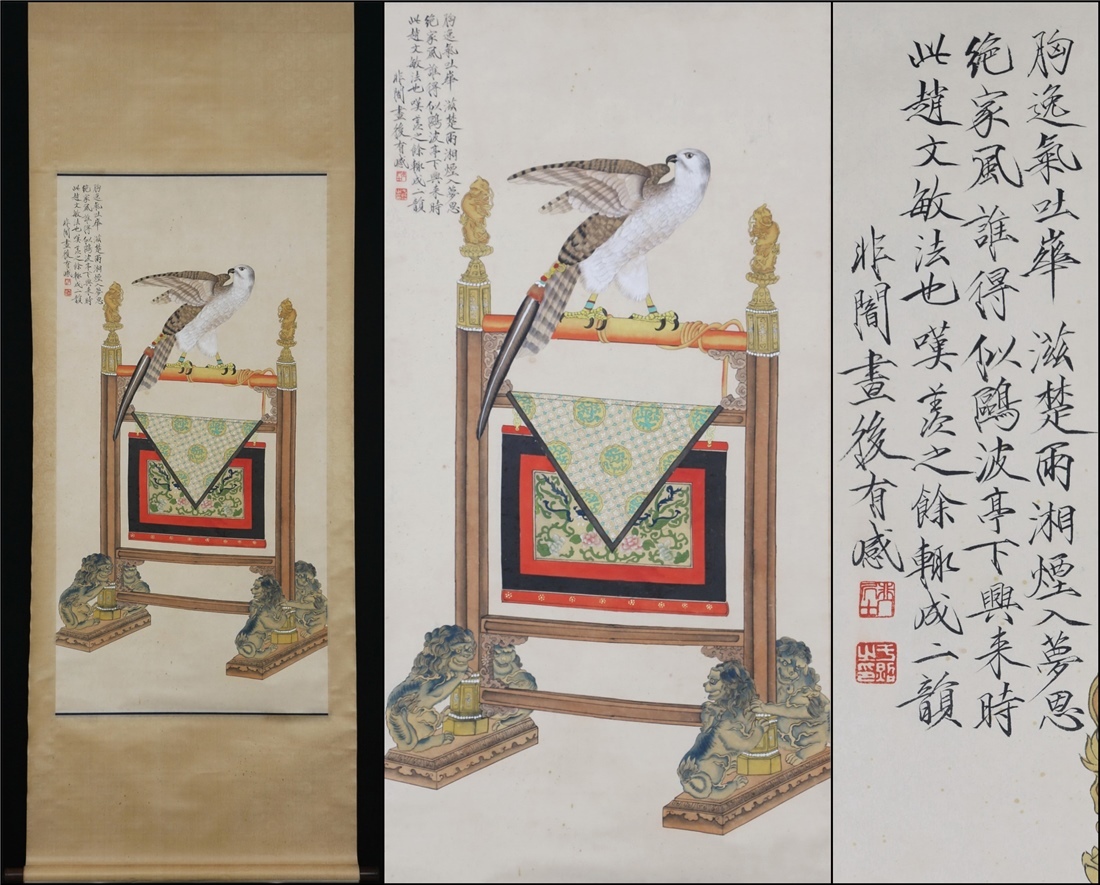 胸逸氣吐華 滋楚雨湘煙入夢思
絶家風誰得似鷗波亭下興来時
此趙文敏法也嘆羨之餘輙成二韻
非闇畫後有感